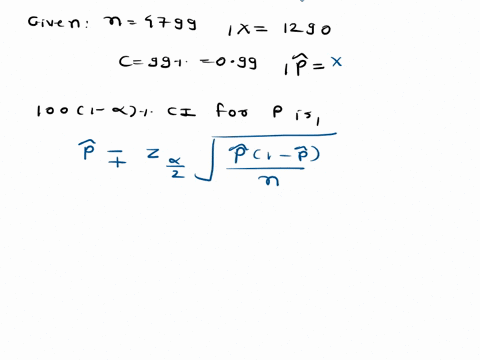 Given: n = 4799 , X = 1290
C = 99% = 0.99 , p̂ = x
100(1-α)% CI for P is,
p̂ ∓ z_{α/2} √(p̂(1-p̂)/n)